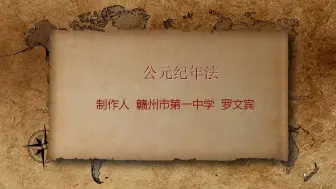 公元纪年法
制作人 赣州市第一中学 罗文宾